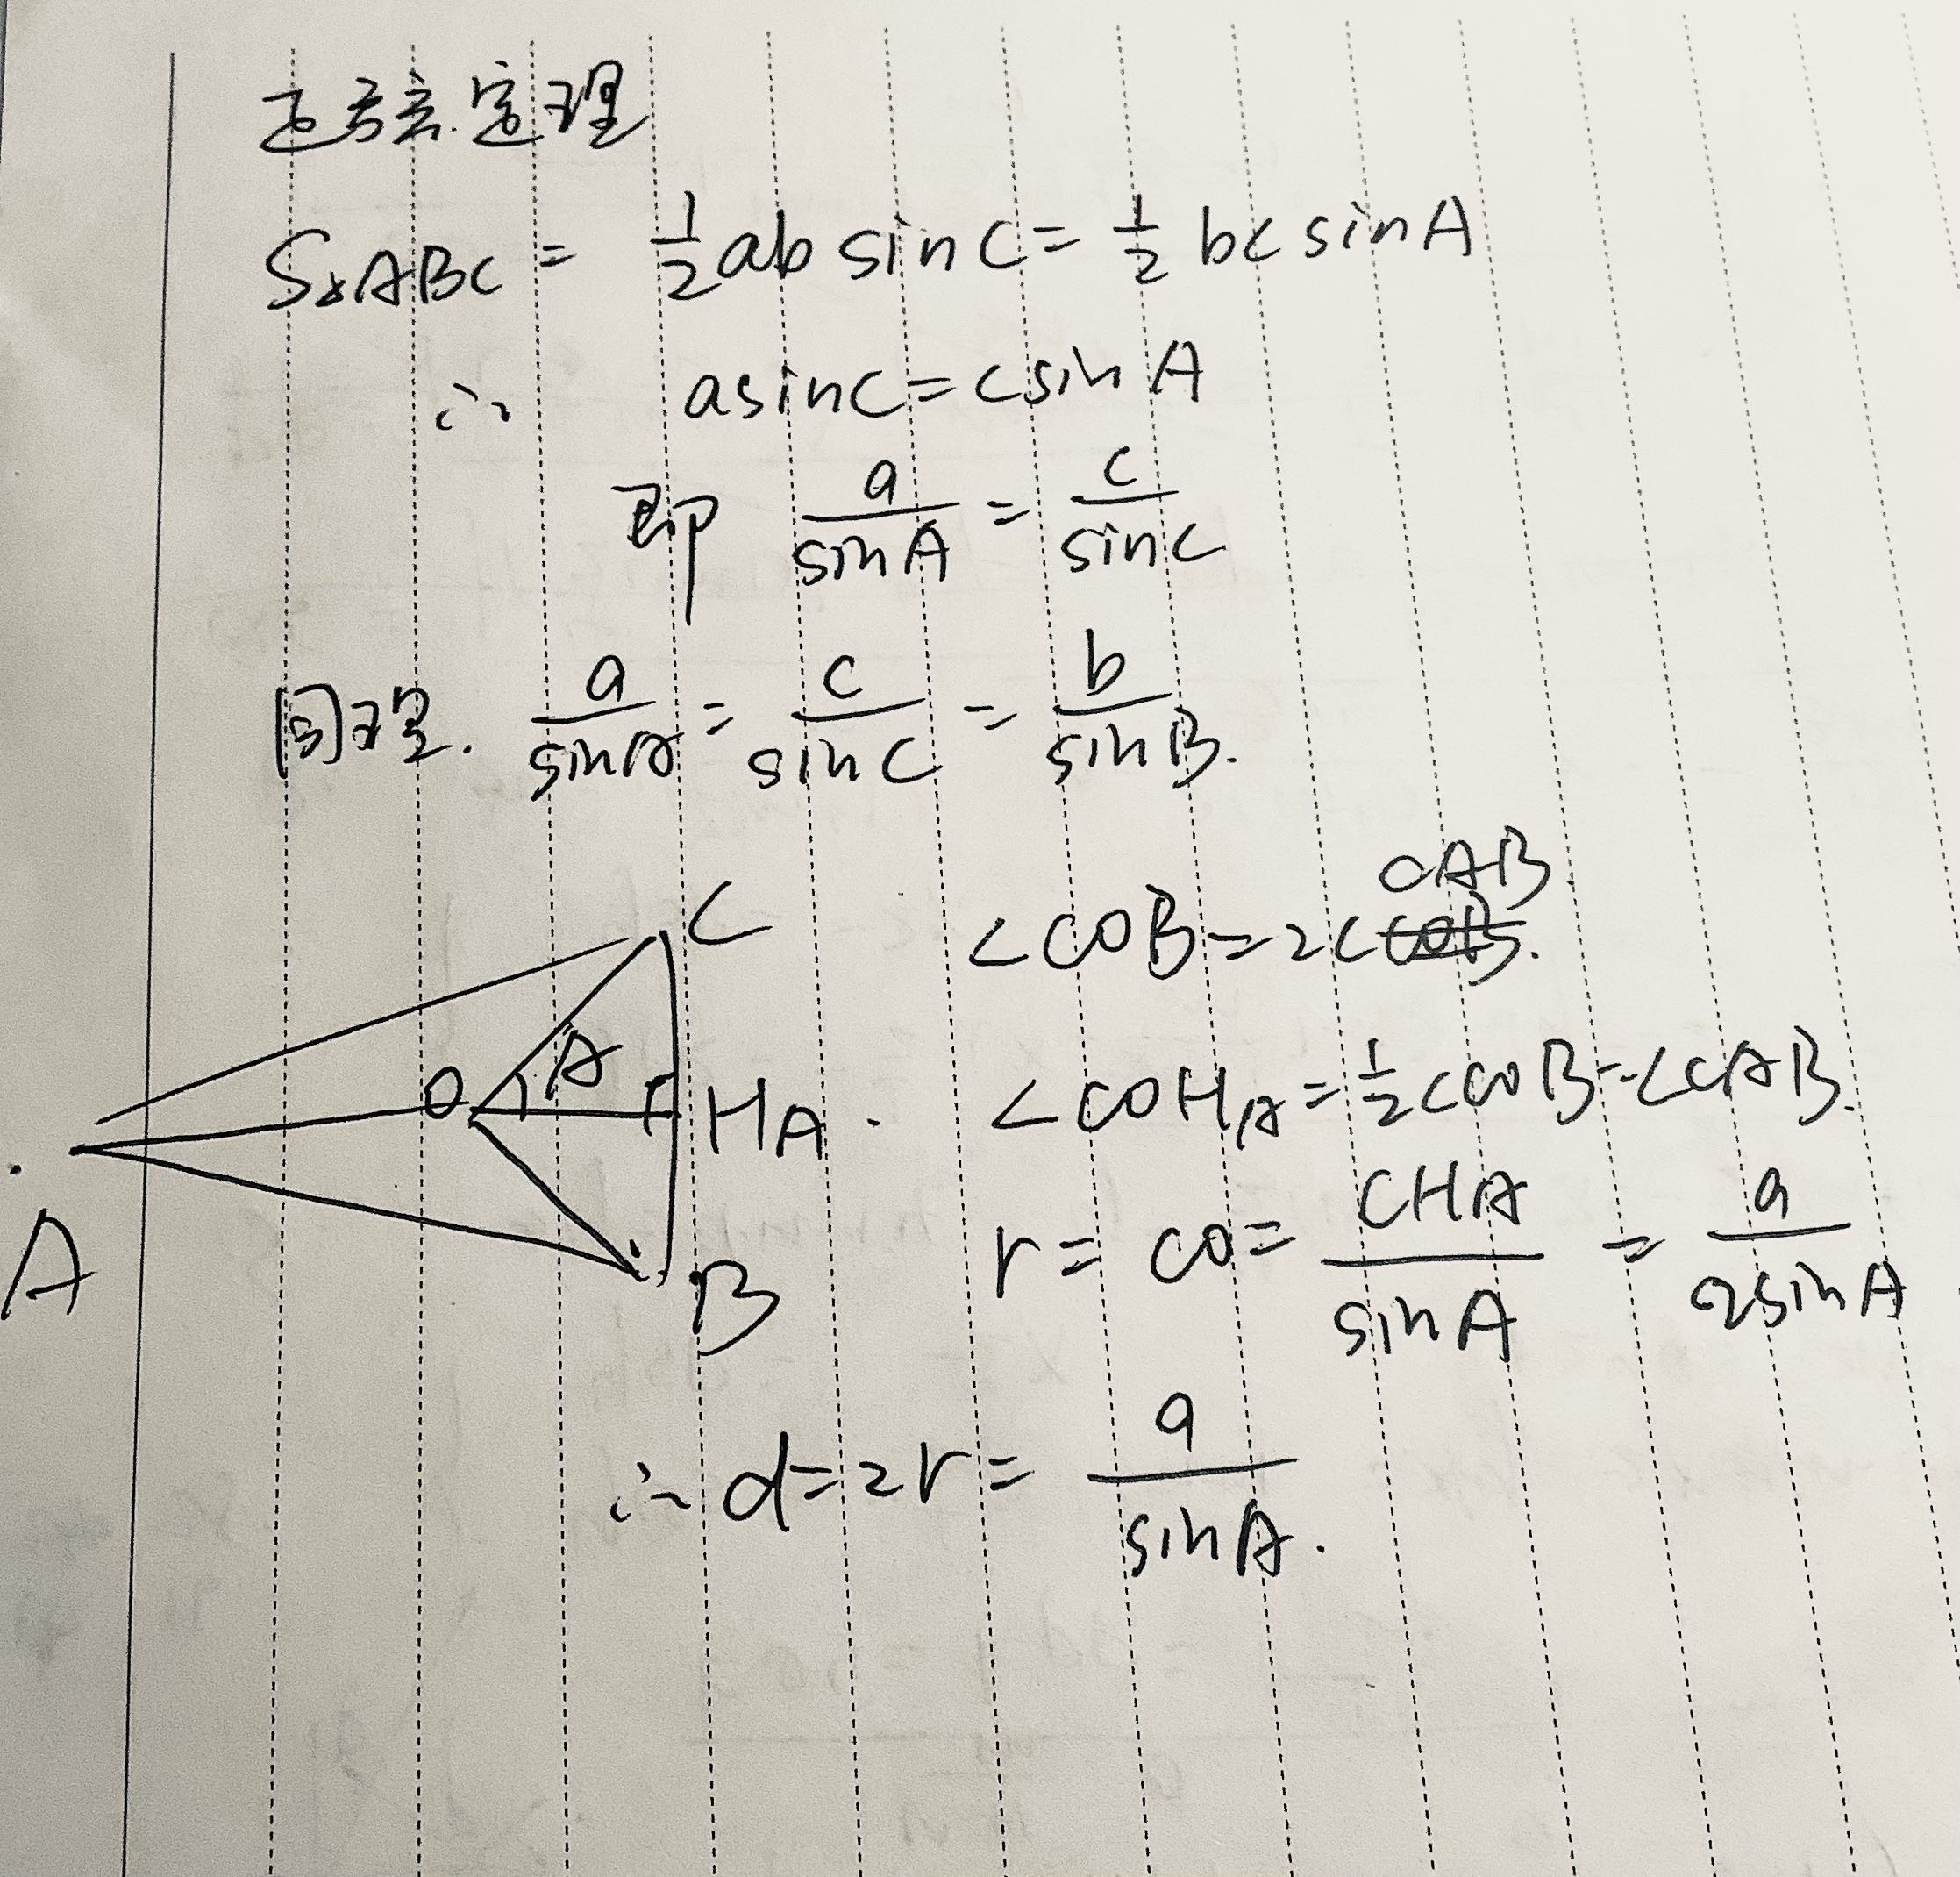 正弦定理
S△ABC = 1/2 ab sin C = 1/2 bc sin A
∴ a sin C = c sin A
即 a/sin A = c/sin C
同理. a/sin A = c/sin C = b/sin B.
C
∠COB = 2∠CAB.
A
O
H_A.
∠COH_A = 1/2 ∠COB = ∠CAB.
A
B
r = CO = CH_A/sin A = a/2sin A
∴ d = 2r = a/sin A.